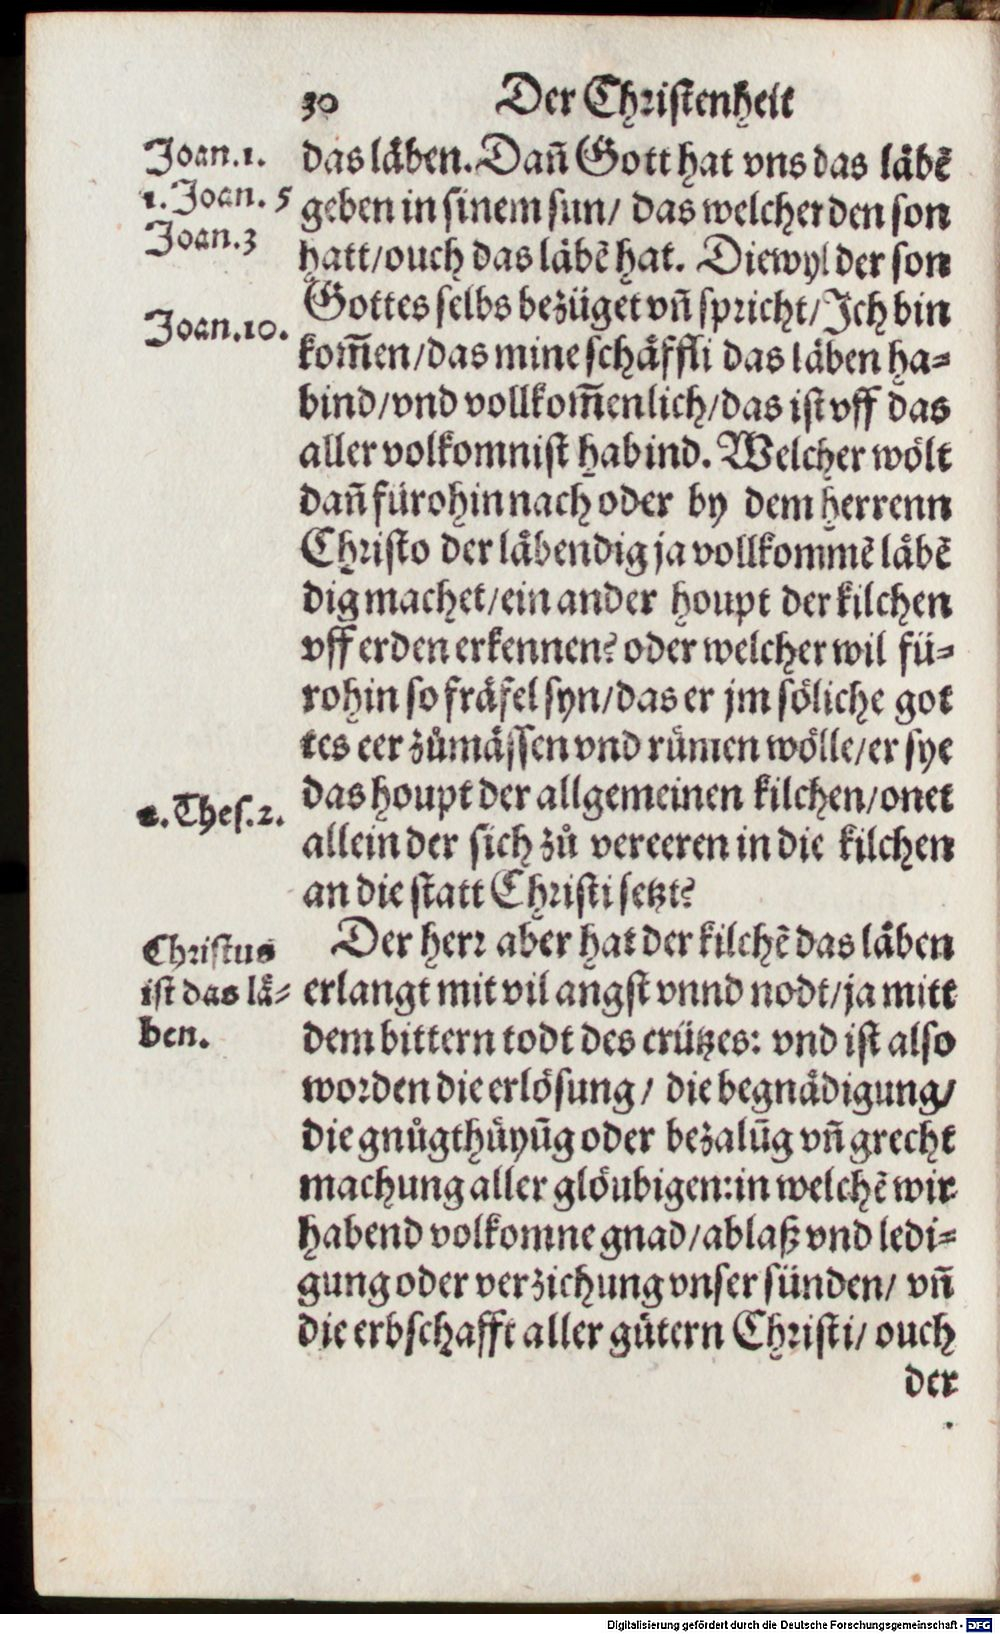 30 Der Christenheit
Joan.1.
1. Joan. 5
Joan.3
Joan.10.
das läben. Dañ Gott hat vns das läbē
geben in sinem sun/ das welcher den son
hatt/ouch das läbē hat. Diewyl der son
Gottes selbs bezüget vñ spricht/Ich bin
kom̅en/das mine schäffli das läben ha⸗
bind/vnd vollkom̅enlich/das ist vff das
aller volkomnist habind. Welcher wölt
dañ fürohin nach oder by dem herrenn
Christo der läbendig ja vollkommē läbē
dig machet/ein ander houpt der kilchen
vff erden erkennen? oder welcher wil fü⸗
rohin so fräfel syn/das er jm söliche got
tes eer zůmässen vnd rümen wölle/er sye
das houpt der allgemeinen kilchen/onet
allein der sich zů vereeren in die kilchen
an die statt Christi setzt?
2. Thes.2.
Der herr aber hat der kilchē das läben
erlangt mit vil angst vnnd nodt/ja mitt
dem bittern todt des crützes: vnd ist also
worden die erlösung/ die begnädigung/
die gnůgthüyūg oder bezalūg vñ grecht
machung aller glöubigen:in welchē wir
habend volkomne gnad/ablaß vnd ledi⸗
gung oder verzichung vnser sünden/ vñ
die erbschafft aller gütern Christi/ ouch
der
Christus
ist das lä⸗
ben.
Digitalisierung gefördert durch die Deutsche Forschungsgemeinschaft - DFG